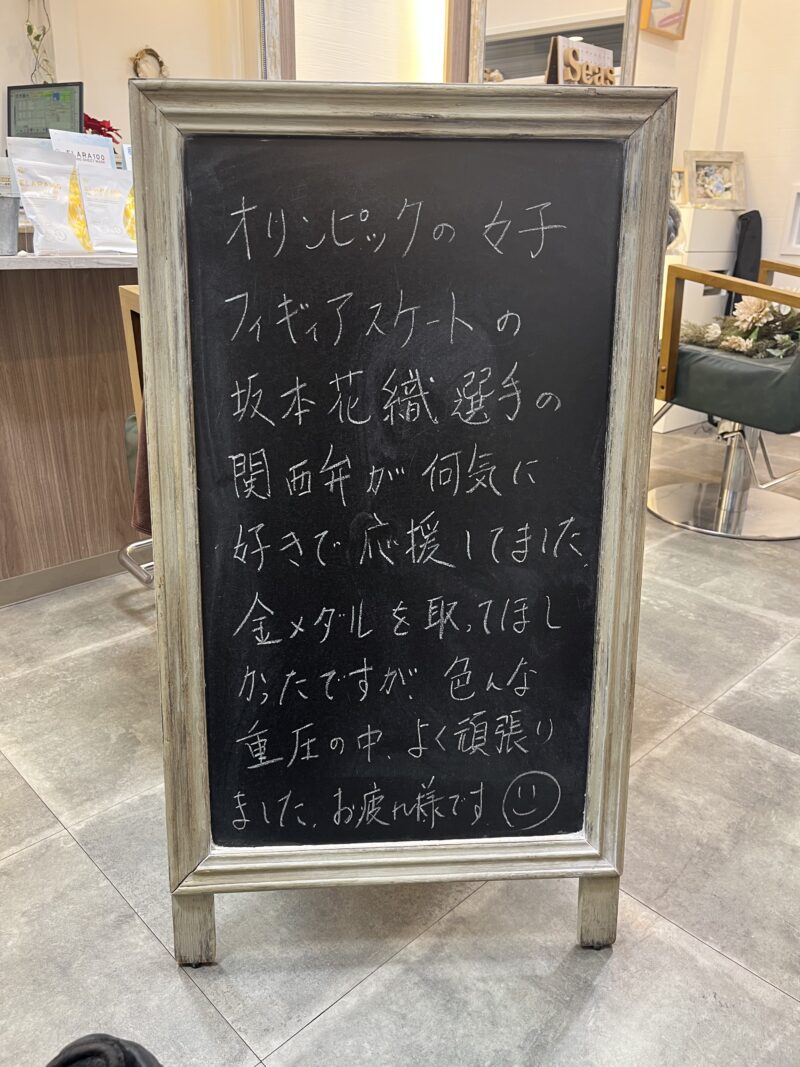 Seas
ELARA100
オリンピックの 女子
フィギィアスケートの
坂本花織選手の
関西弁が 何気に
好きで 応援してました。
金メダルを取ってほし
かったですが、色んな
重圧の中、よく頑張り
ました。お疲れ様です